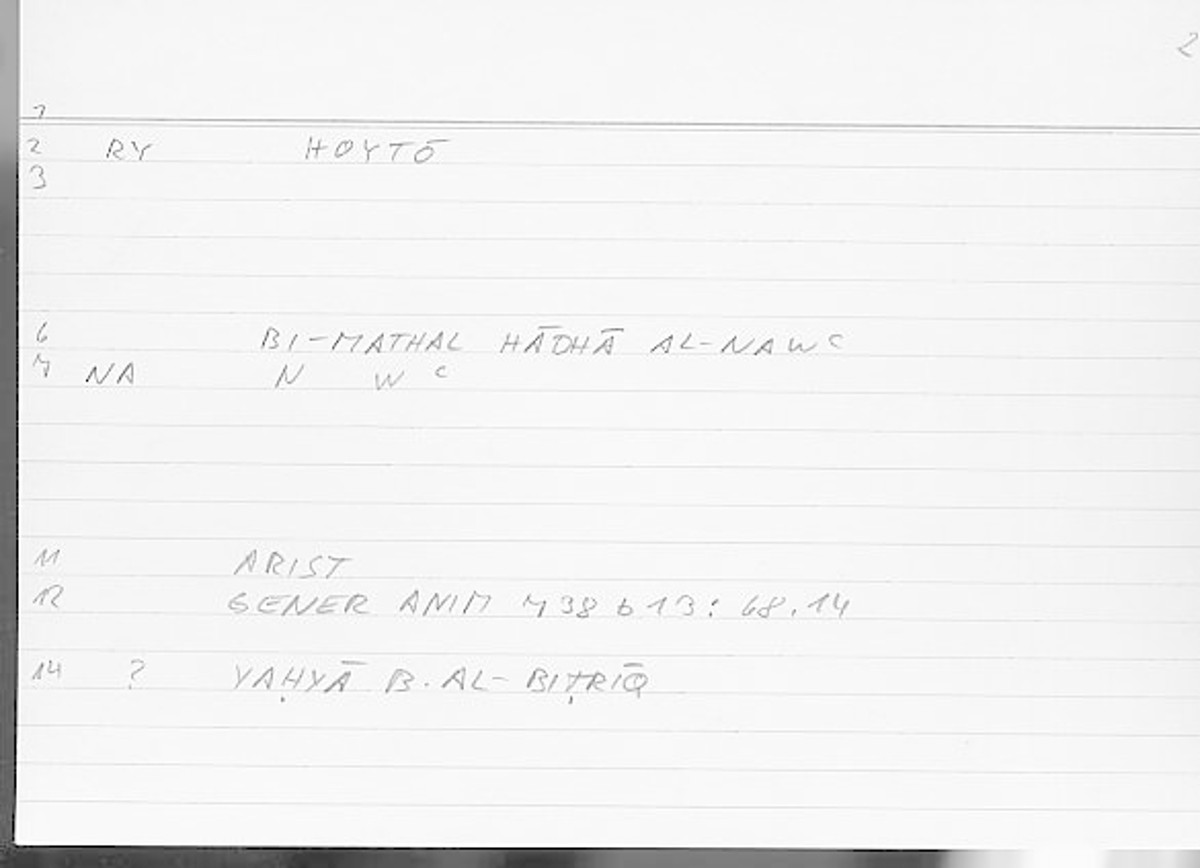 2
1
2 RY HOYTŌ
3
6 BI-MATHAL HĀDHĀ AL-NAWC
7 NA N W C
11 ARIST
12 GENER ANIM 738 b 13 : 68.14
14 ? YAḤYĀ B. AL-BIṬRĪQ